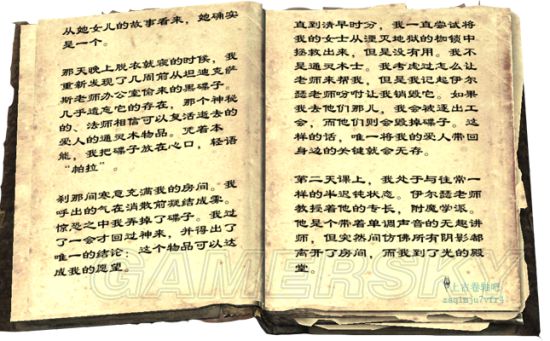 从她女儿的故事看来，她确实
是一个。
那天晚上脱衣就寝的时候，我
重新发现了几周前从坦迪克萨
斯老师办公室偷来的黑碟子。
几乎遗忘它的存在，那个神秘
的、法师相信可以复活逝去的
爱人的通灵术物品。凭着本
能，我把碟子放在心口，轻语
“帕拉”。
刹那间寒意充满我的房间。我
呼出的气在消散前凝结成雾。
惊恐之中我弄掉了碟子。我过
了一会才回过神来，并得出了
唯一的结论：这个物品可以达
成我的愿望。
直到清早时分，我一直尝试将
我的女士从湮灭地狱的枷锁中
拯救出来，但是没有用。我不
是通灵术士。我考虑过怎么让
老师来帮我，但是我记起伊尔
瑟老师吩咐让我销毁它。如果
我去他们那儿，我会被逐出工
会，而他们则会毁掉碟子。这
样的话，唯一将我的爱人带回
身边的关键就会无存。
第二天课上，我处于与往常一
样的半迟钝状态。伊尔瑟老师
教授着他的专长，附魔学派。
他是个带着单调声音的无趣讲
师，但突然间仿佛所有阴影都
离开了房间，而我到了光的殿
堂。
GAMERSKY
上古卷轴吧
zaq1mju7vfr4